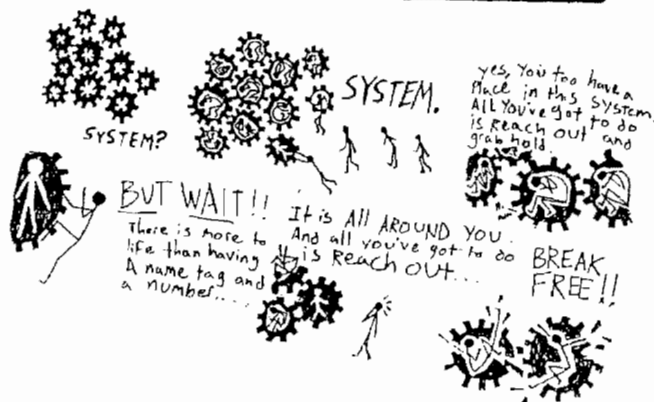 SYSTEM?
SYSTEM.
yes, you too have a
place in this system.
All you've got to do
is reach out and
grab hold.
BUT WAIT!!
There is more to
life than having
A name tag and
a number....
It is All AROUND YOU.
And all you've got to do
is REACH OUT...
BREAK
FREE!!